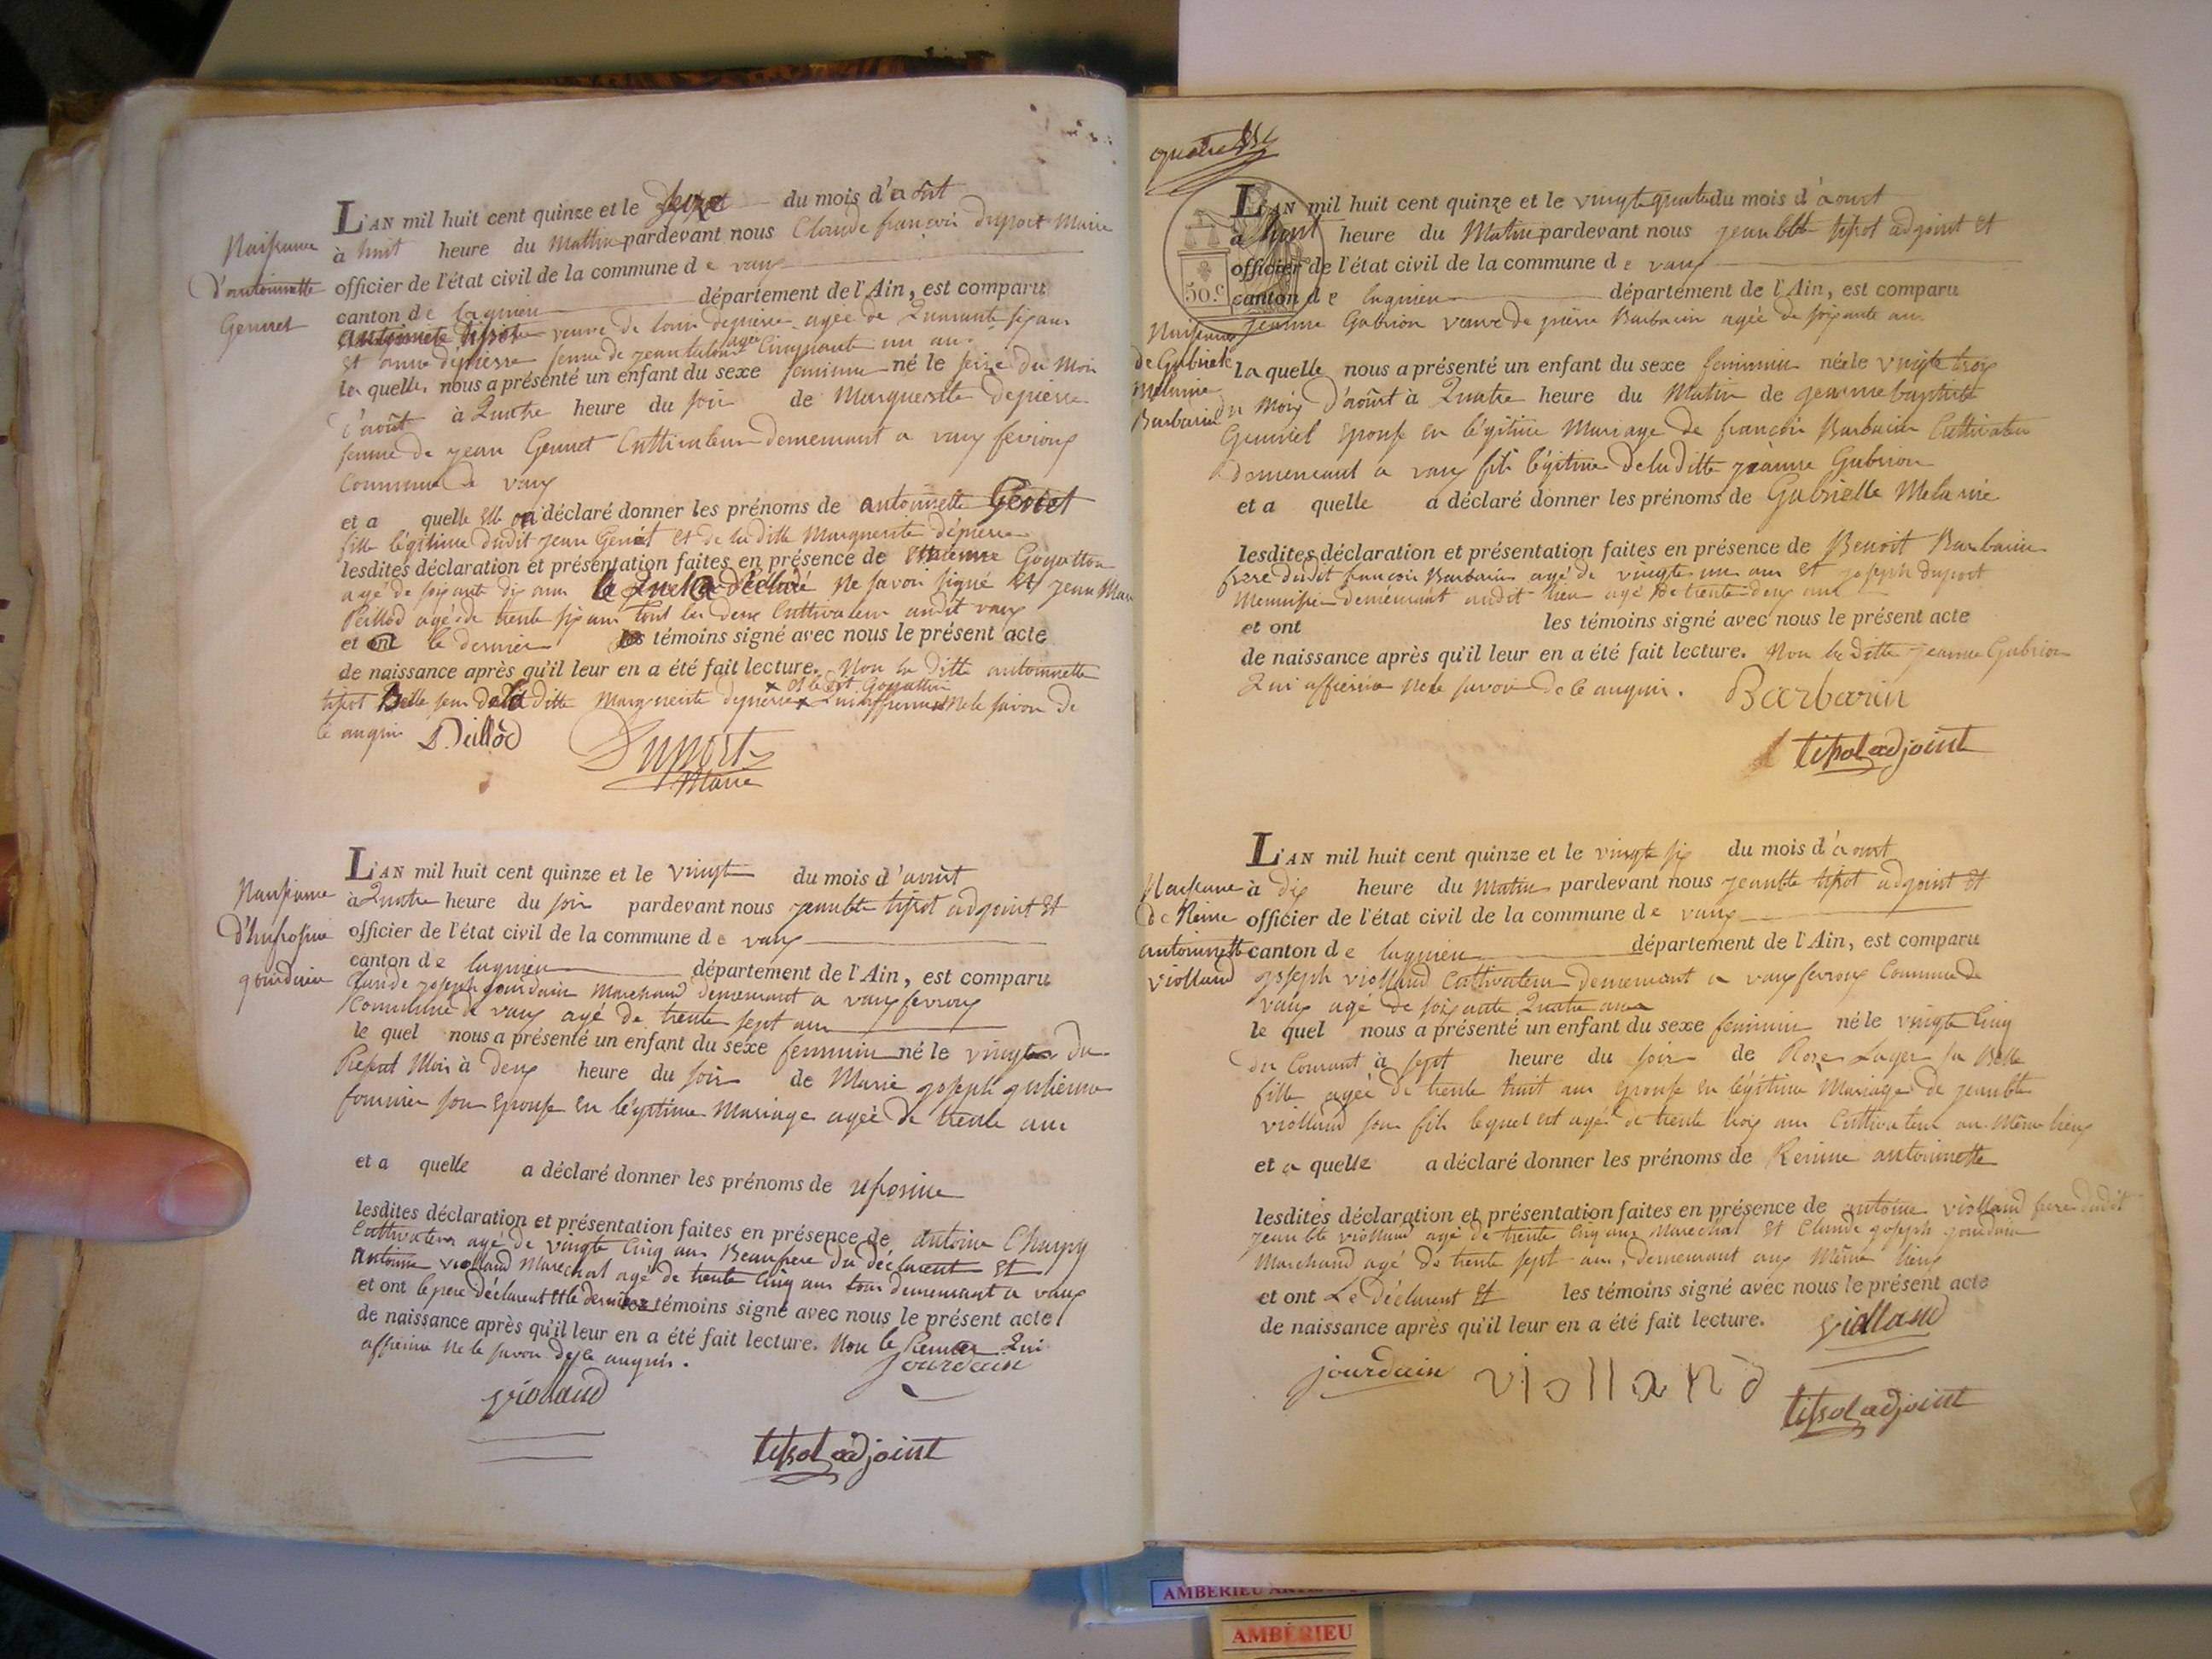 Naissance
d'antoinette
Gennet
L'AN mil huit cent quinze et le seize du mois d'août
à huit heure du Mattin pardevant nous Claude françois duport Maire
officier de l'état civil de la commune de vaux
canton de lagnieu département de l'Ain, est comparu
antoinette tissot veuve de louis depierre agée de quarante six ans
et anne depierre femme de jean agée Cinquante un ans
les quelles nous a présenté un enfant du sexe feminine né le seize du Mois
d'août à Quatre heure du soir de Marguerite depierre
femme de jean Gennet Cultivateur demeurant a vaux fevroux
Commune de vaux
et a quelle elle on déclaré donner les prénoms de antoinette Genet
fille légitime dudit jean Genet et de la ditte Marguerite depierre
lesdites déclaration et présentation faites en présence de Etienne Goyatton
agé de soixante dix ans le quel a déclaré ne savoir signé Et jean Mar
Peillod agé de trente six ans tout les deux Cultivateur audit vaux
et ont le dernier les témoins signé avec nous le présent acte
de naissance après qu'il leur en a été fait lecture. Non la ditte antoinnette
tissot Belle seur de la ditte Marguerite depierre et le dit Goyatton qui affirme ne le savoir de
ce anquis P. Peillod Duport
Maire
Naissance
d'hufrosine
jourdain
L'AN mil huit cent quinze et le vingt du mois d'aoust
à Quatre heure du soir pardevant nous jeanbte tissot adjoint et
officier de l'état civil de la commune de vaux
canton de lagnieu département de l'Ain, est comparu
Claude joseph jourdain Marchand demeurant a vaux fevroux
Commune de vaux agé de trente sept ans
le quel nous a présenté un enfant du sexe feminin né le vingt du
Présent Mois à deux heure du soir de Marie joseph
fournier son Epouse en légitime Mariage ageé de trente ans
et a quelle a déclaré donner les prénoms de ufrosine
lesdites déclaration et présentation faites en présence de antoine Charpy
Cultivateur agé de vingte Cinq ans Beaufrere du déclarent et
antoine violland Marechal agé de trente Cinq ans tous demeurant a vaux
et ont le pere déclarent et le dernier témoins signé avec nous le présent acte
de naissance après qu'il leur en a été fait lecture. Non le Premier Qui
affirme ne le savoir de ce anquis. jourdain
violland
tissot adjoint
quatre
50.c
Naissance
de Gabriele
Melanie
Barbarin
L'AN mil huit cent quinze et le vingt quatre du mois d'aoust
a huit heure du Matin pardevant nous jeanbte tissot adjoint et
officier de l'état civil de la commune de vaux
canton de lagnieu département de l'Ain, est comparu
Jeanne Gabrion veuve de pierre Barbarin ageé de soixante ans
la quelle nous a présenté un enfant du sexe feminin néele vingte trois
du Mois d'août à Quatre heure du Matin de jeanne baptiste
epouse en légitime Mariage de françois Barbarin Cultivateur
demeurant a vaux fils légitime de la ditte jeanne Gabrion
et a quelle a déclaré donner les prénoms de Gabrielle Melanie
lesdites déclaration et présentation faites en présence de Benoit Barbarin
frere dudit francois Barbarin agé de vingte un ans et joseph duport
Menuisier demeurant audit lieu agé de trente deux ans
et ont les témoins signé avec nous le présent acte
de naissance après qu'il leur en a été fait lecture. Non la ditte jeanne Gabrion
Qui affirme ne le savoir de ce anquis. Barbarin
tissot adjoint
Naissance
de Reine
antoinette
violland
L'AN mil huit cent quinze et le vingte six du mois d'aoust
à dix heure du Matin pardevant nous jeanbte tissot adjoint et
officier de l'état civil de la commune de vaux
canton de lagnieu département de l'Ain, est comparu
joseph violland Cultivateur demeurant a vaux fevroux Commune de
vaux agé de soixante Quatre ans
le quel nous a présenté un enfant du sexe feminin né le vingte Cinq
du Courant à sept heure du soir de Rose Lager sa Belle
fille ageé de trente huit ans epouse en légitime Mariage de jeanbte
violland son fils lequel est agé de trente trois ans Cultivateur au Même lieux
et a quelle a déclaré donner les prénoms de Reinne antoinette
lesdites déclaration et présentation faites en présence de antoine violland frere dudit
jeanbte violland agé de trente Cinq ans Marechal Et Claude joseph jourdain
Marchand agé de trente sept ans, demeurant aux Même lieux
et ont Le déclarent et les témoins signé avec nous le présent acte
de naissance après qu'il leur en a été fait lecture. violland
jourdain violland
tissot adjoint
AMBERIEU
AMBÉRIEU